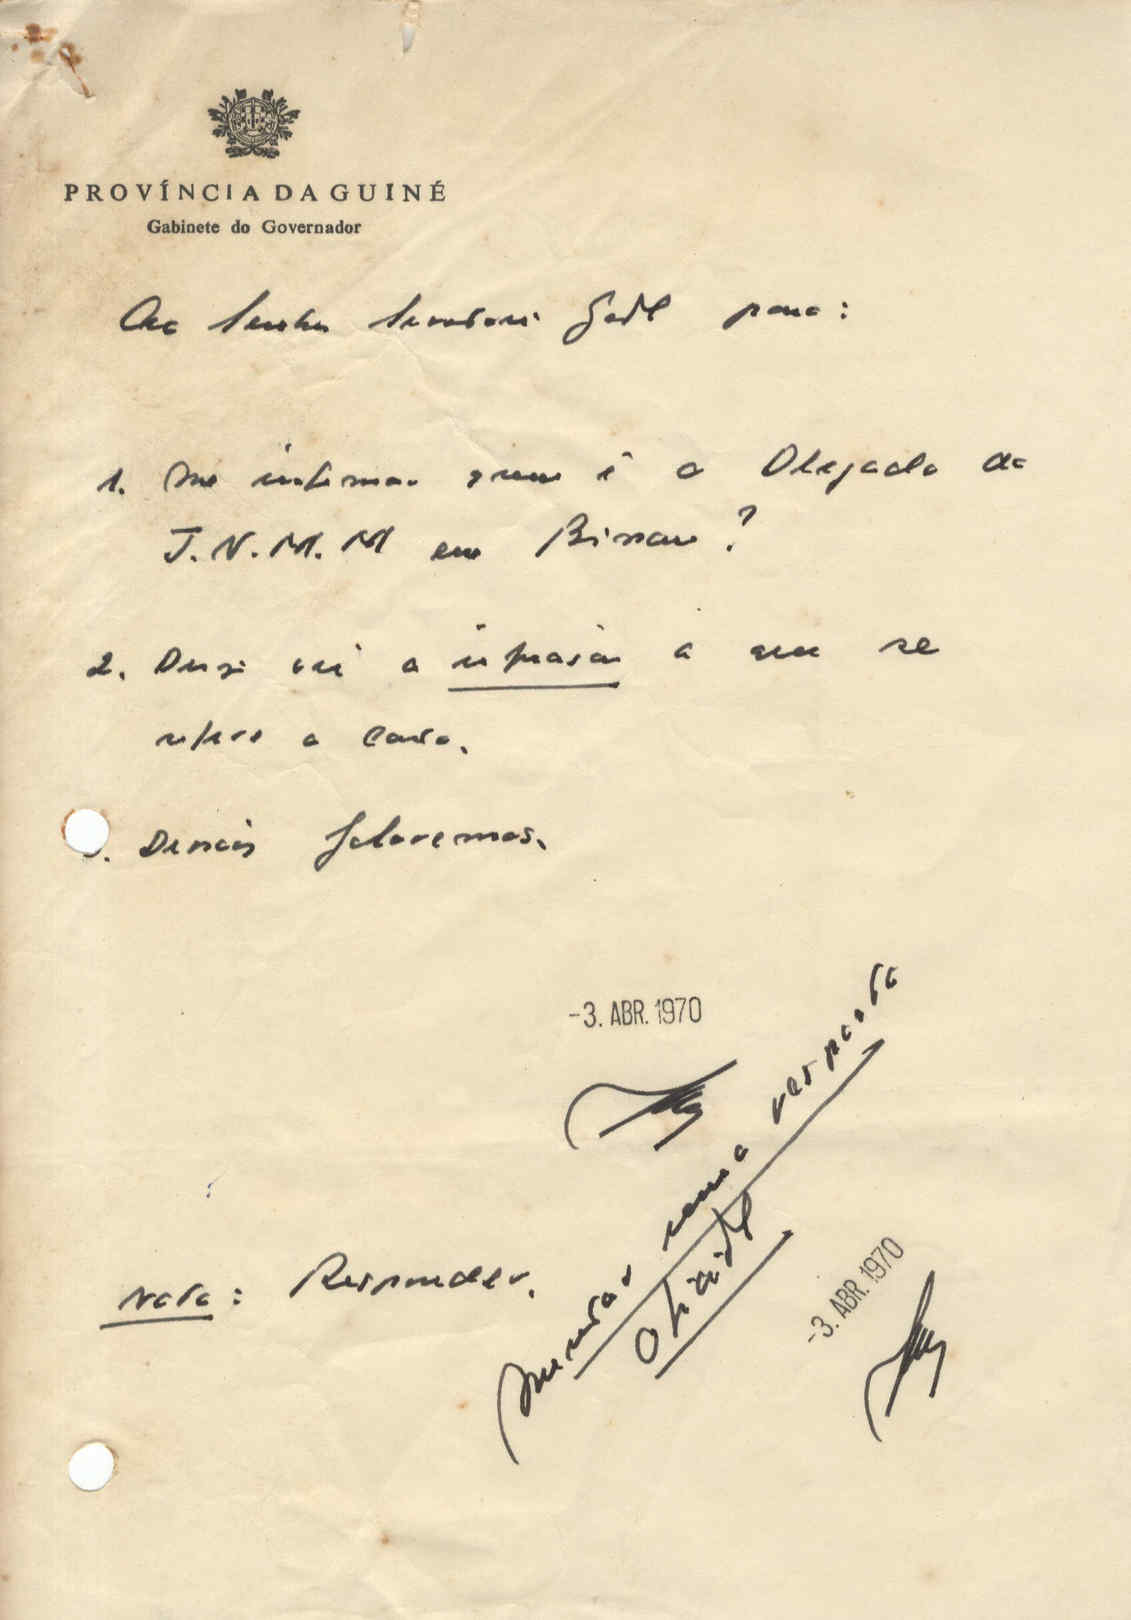 PROVÍNCIA DA GUINÉ
Gabinete do Governador
Ao Senhor Secretário Geral para:
1. Me informar quem é o Delegado da
J.N.M.M em Bissau?
2. Dizer a que se
refere a carta.
3. Depois falaremos.
-3. ABR. 1970
Nota: Responder.
uma resposta
-3. ABR. 1970